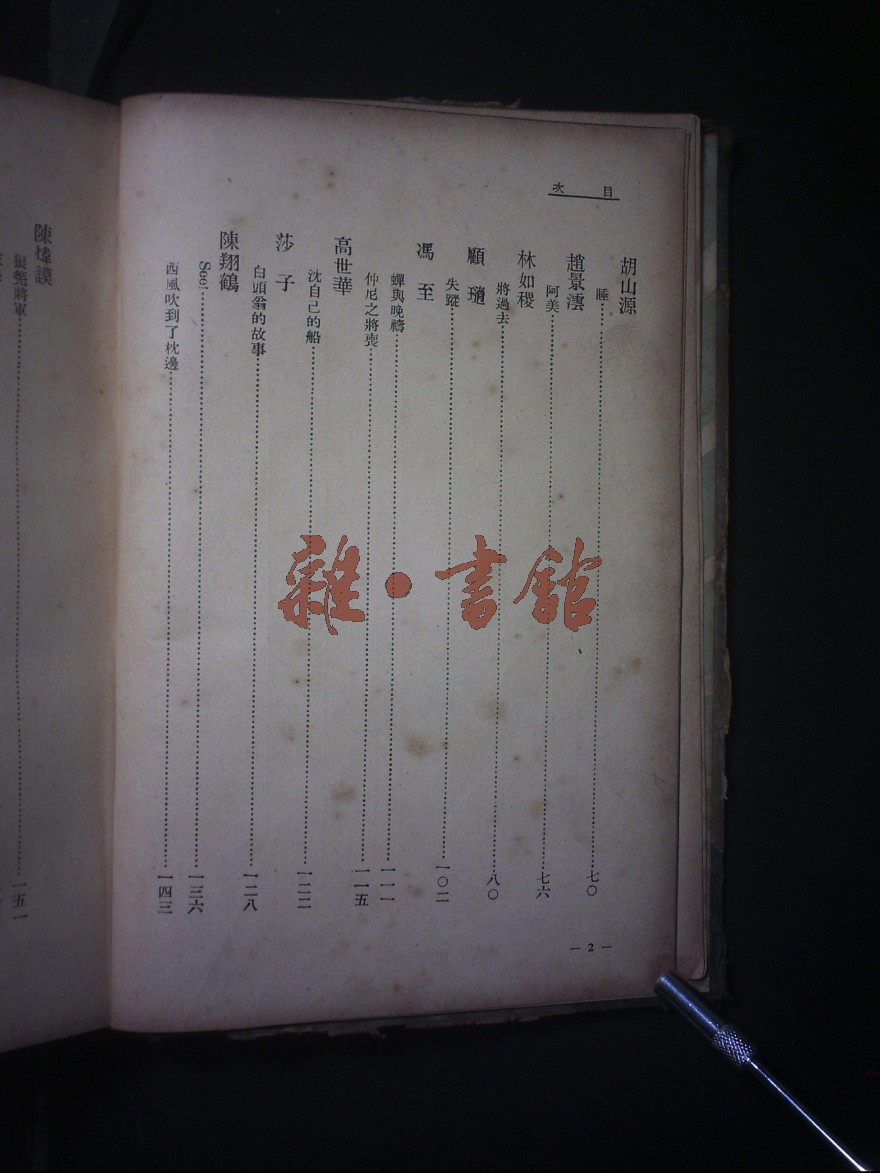 目次
胡山源
睡……七〇
趙景澐
阿美……七六
林如稷
將過去……八〇
顧𨻶
失蹤……一〇二
馮至
蟬與晚禱……一一一
仲尼之將喪……一一五
高世華
沈自己的船……一二二
莎子
白頭翁的故事……一二八
陳翔鶴
See!……一三六
西風吹到了枕邊……一四三
— 2 —
陳煒謨
將軍……一五一
雜·書館